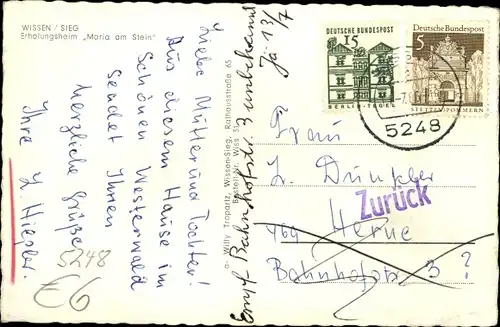 WISSEN / SIEG
Erholungsheim „Maria am Stein"
Liebe Mutter und Tochter!
Aus diesem Hause im
Schönen Westerwald
sendet Ihnen
herzliche Grüße
Ihre L. Hiepler.
5248
€6
Willy Tropartz, Wissen-Sieg, Rathausstraße 65
Bestell-Nr.
Empf. Bahnhofstr. 3 unbekannt
13/7
15
DEUTSCHE BUNDESPOST
BERLIN-TEGEL
Deutsche Bundespost
5
STETTIN/POMMERN
5248
Frau
L. Dunkler
Zurück
469 Herne
Bahnhofstr. 3 ?